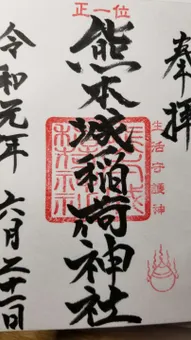 奉拝
生活守護神
正一位
熊本城稲荷神社
令和元年 六月二十一日